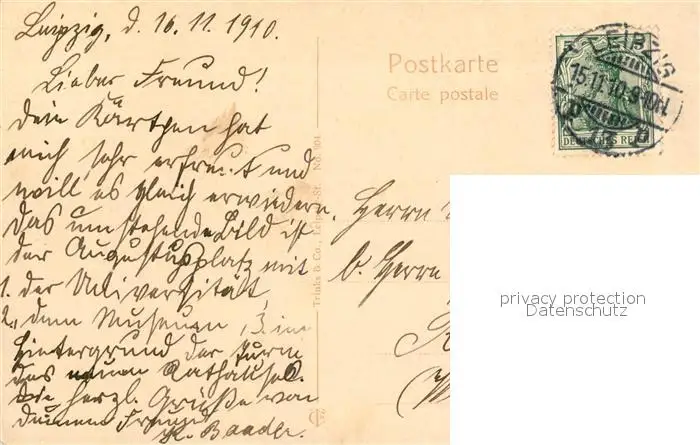 Leipzig, d. 16.11.1910.
Lieber Freund!
Dein Kärtchen hat
mich sehr erfreut und
will es gleich erwidern.
Das umstehende Bild ist
der Augustusplatz mit
1. der Universität,
2. dem Museum, 3. im
Hintergrund der Turm
des neuen Rathauses.
Die herzl. Grüße von
deinem Freund
Baader.
Postkarte
Carte postale
Trinks & Co., Leipzig
LEIPZIG
15.11.10.9-10N.
DEUTSCHES REICH
5
Herrn
b. Herrn
privacy protection
Datenschutz